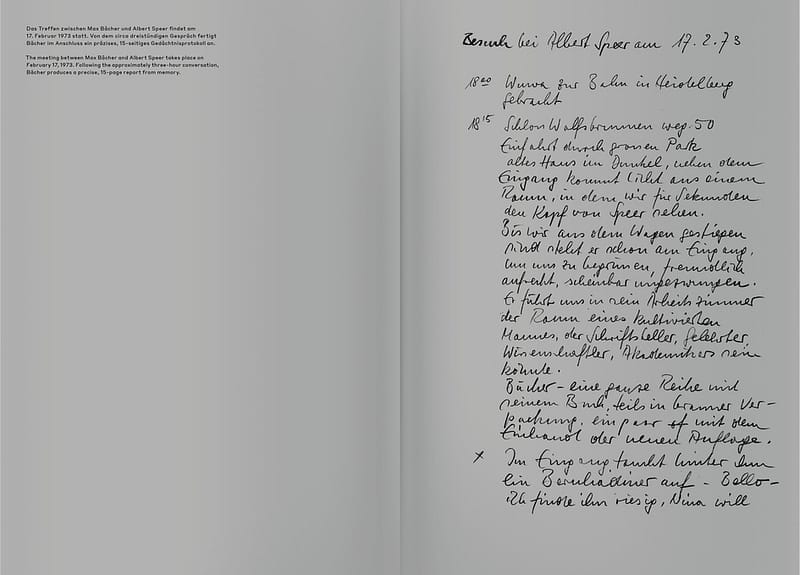 Das Treffen zwischen Max Bächer und Albert Speer findet am
17. Februar 1973 statt. Von dem circa dreistündigen Gespräch fertigt
Bächer im Anschluss ein präzises, 15-seitiges Gedächtnisprotokoll an.
The meeting between Max Bächer and Albert Speer takes place on
February 17, 1973. Following the approximately three-hour conversation,
Bächer produces a precise, 15-page report from memory.
Besuch bei Albert Speer am 17.2.73
18⁰⁰ zur Bahn in Heidelberg
gebracht
18¹⁵ Schloss Wolfsbrunnen weg. 50
Einfahrt durch grossen Park
altes Haus im Dunkel, neben dem
Eingang kommt Licht aus einem
Raum, in dem wir für Sekunden
den Kopf von Speer sehen.
Bis wir aus dem Wagen gestiegen
sind steht er schon am Eingang,
um uns zu begrüssen, freundlich
aufrecht, scheinbar ungezwungen.
Er führt uns in sein Arbeitszimmer
der Raum eines kultivierten
Mannes, der Schriftsteller, Gelehrter,
Wissenschaftler, Akademikers sein
könnte.
Bücher – eine ganze Reihe mit
seinem Buch, teils in brauner Ver-
packung, ein paar mit dem
Einband der neuen Auflage.
x Im Eingang taucht hinter ihm
ein Bernhardiner auf – Bello –
ich finde ihn riesig, Nina will